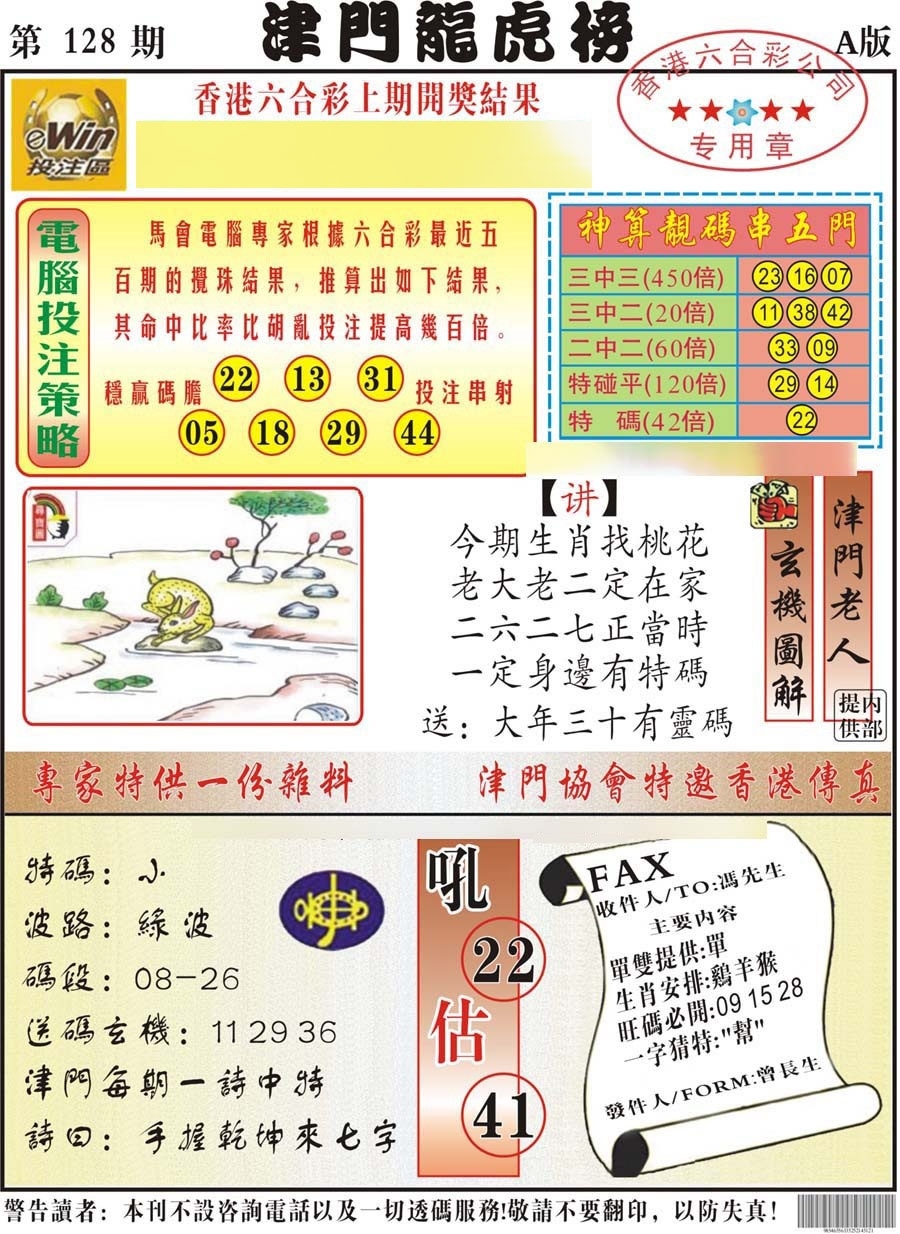 第 128 期
津門龍虎榜
A版
eWin
投注區
香港六合彩上期開獎結果
香港六合彩公司
专用章
電腦投注策略
馬會電腦專家根據六合彩最近五
百期的攪珠結果，推算出如下結果，
其命中比率比胡亂投注提高幾百倍。
穩贏碼膽 22 13 31 投注串射
05 18 29 44
神算靚碼串五門
三中三(450倍) 23 16 07
三中二(20倍) 11 38 42
二中二(60倍) 33 09
特碰平(120倍) 29 14
特 碼(42倍) 22
尋寶圖
【讲】
今期生肖找桃花
老大老二定在家
二六二七正當時
一定身邊有特碼
送：大年三十有靈碼
玄機圖解
津門老人
内部提供
專家特供一份雜料
津門協會特邀香港傳真
特碼：小
波路：綠波
碼段：08-26
送碼玄機：11 29 36
津門每期一詩中特
詩曰：手握乾坤來七字
吼
22
估
41
FAX
收件人/TO:馮先生
主要内容
單雙提供:單
生肖安排:鷄羊猴
旺碼必開:09 15 28
一字猜特:"幫"
發件人/FORM:曾長生
警告讀者：本刊不設咨詢電話以及一切透碼服務!敬請不要翻印，以防失真！